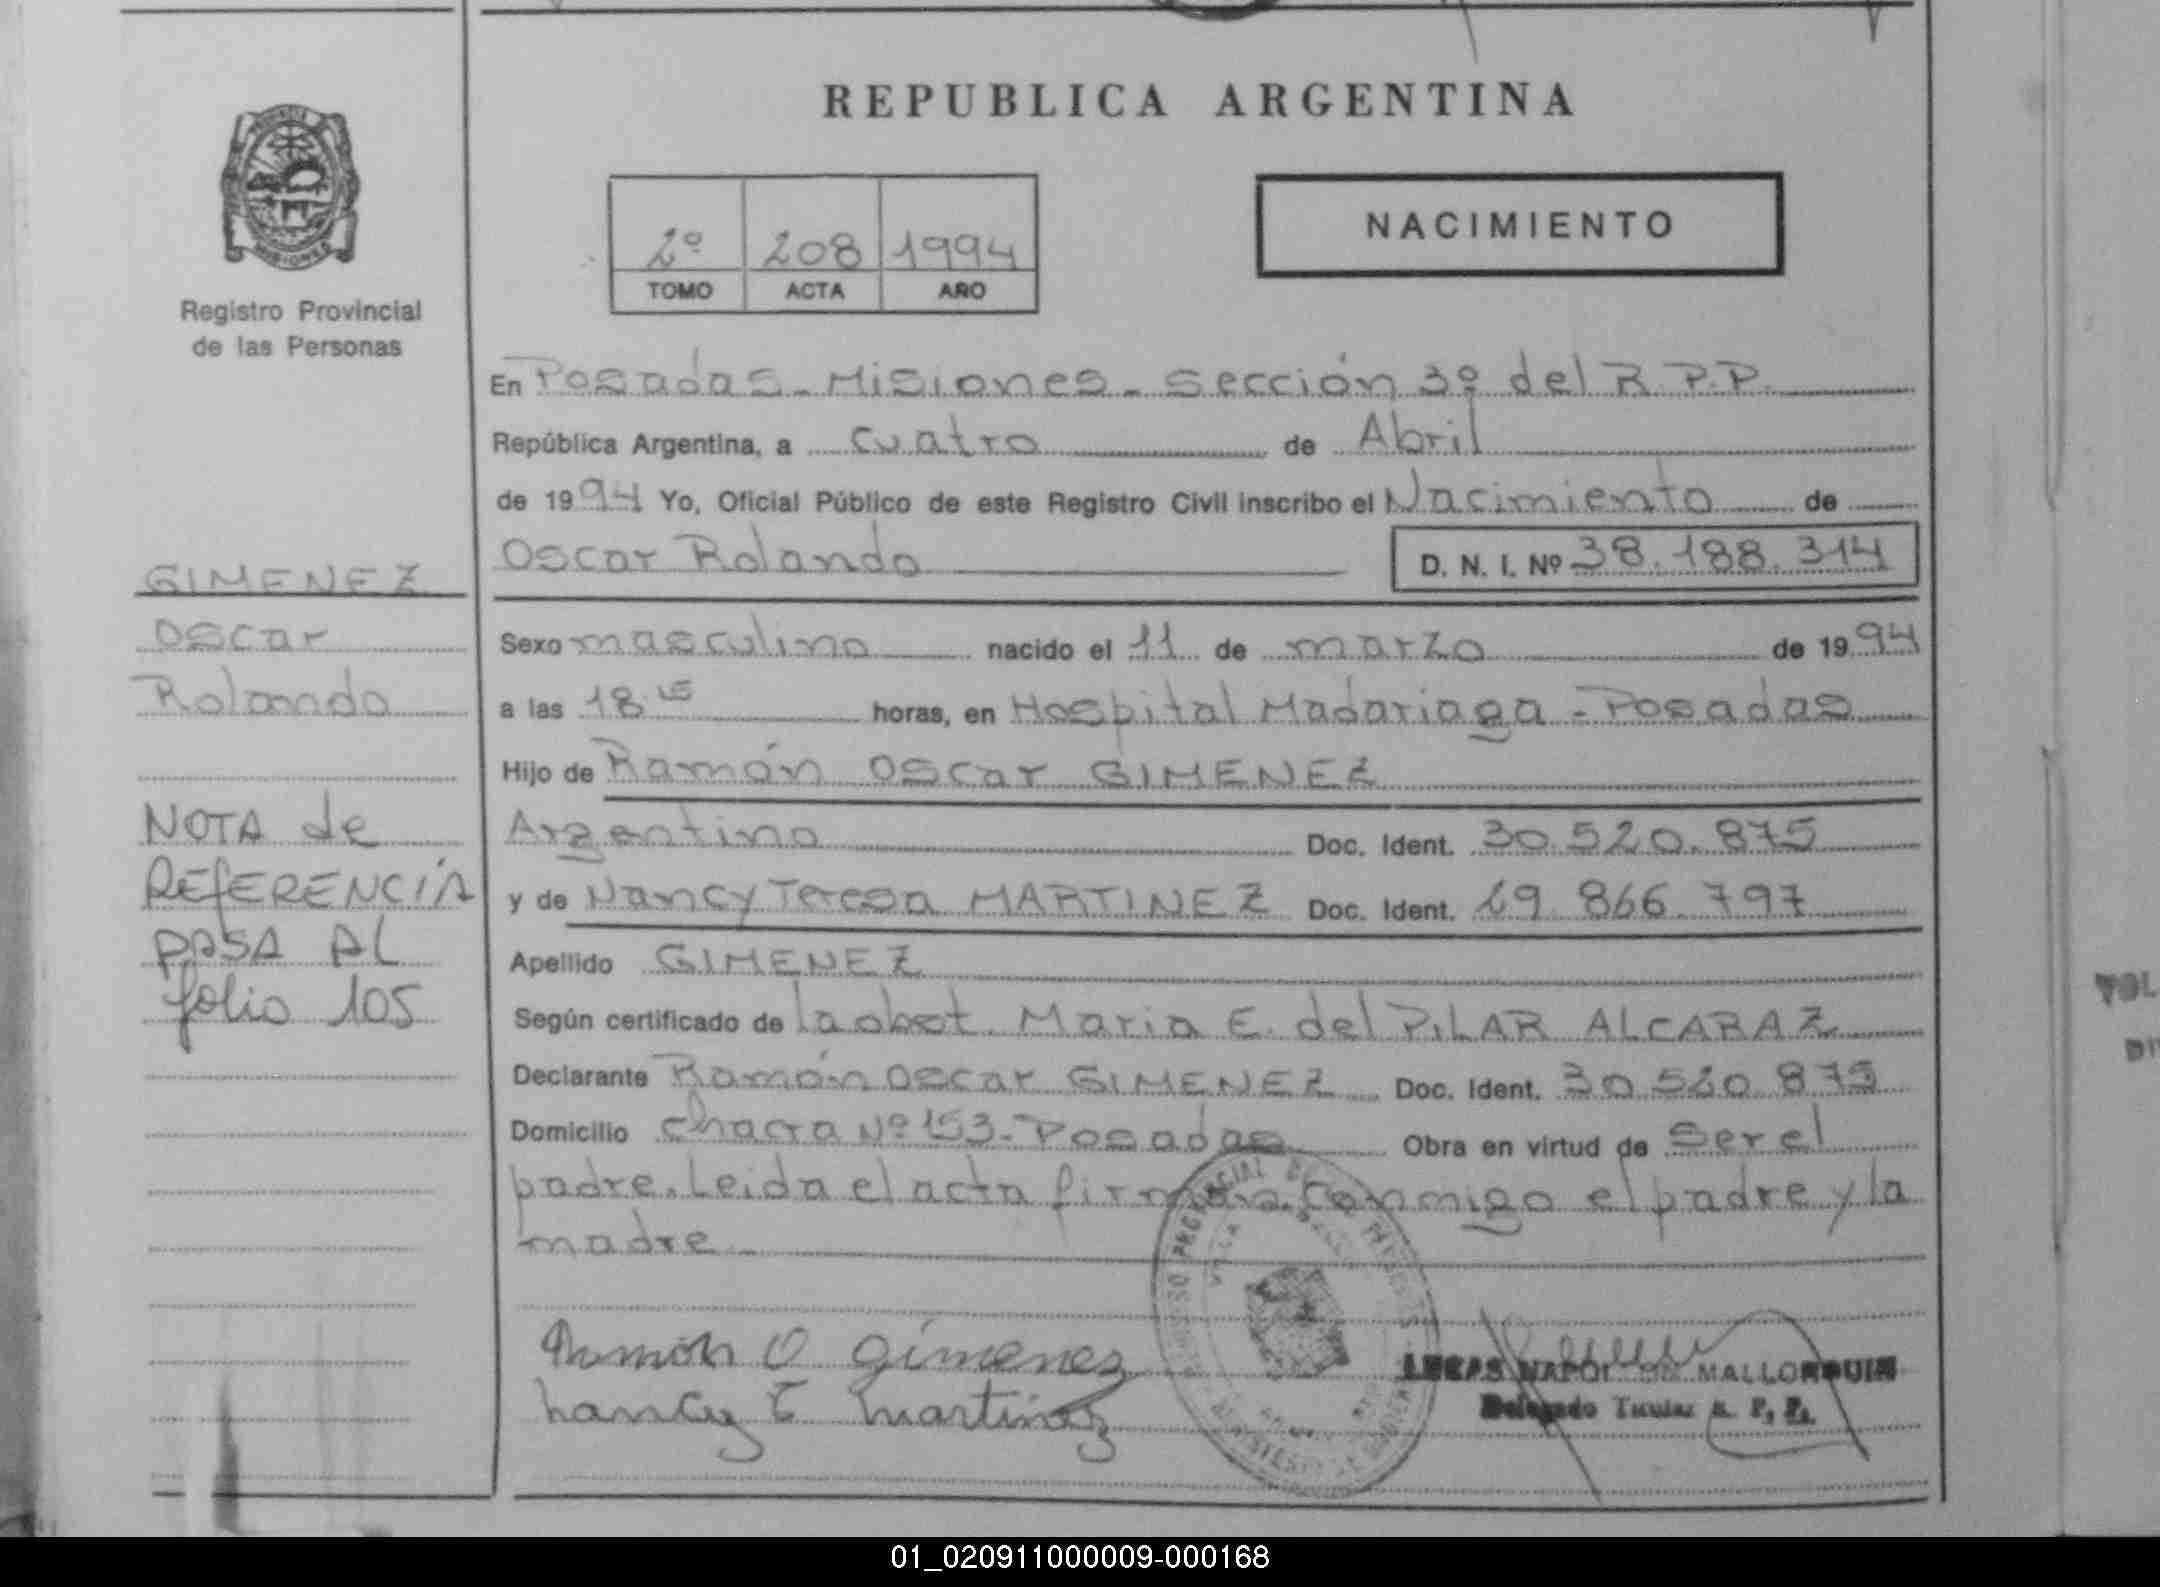 REPUBLICA ARGENTINA
2º 208 1994
TOMO ACTA AÑO
NACIMIENTO
PROVINCIA
MISIONES
Registro Provincial
de las Personas
En Posadas - Misiones - Sección 3º del R.P.P.
República Argentina, a cuatro de Abril
de 1994 Yo, Oficial Público de este Registro Civil inscribo el Nacimiento de
Oscar Rolando D. N. I. Nº 38.188.314
Sexo masculino nacido el 11 de marzo de 1994
a las 18 15 horas, en Hospital Madariaga - Posadas
Hijo de Ramón Oscar GIMENEZ
Argentino Doc. Ident. 30.520.875
y de Nancy Teresa MARTINEZ Doc. Ident. 29.866.797
Apellido GIMENEZ
Según certificado de la obst. Maria E. del PILAR ALCARAZ
Declarante Ramón Oscar GIMENEZ Doc. Ident. 30.520.875
Domicilio Chacra Nº 153 - Posadas Obra en virtud de ser el
padre. Leida el acta firman conmigo el padre y la
madre
Ramón O gimenez
nancy t martinez
LUCAS NAPOLEON MALLORQUIN
Delegado Titular R. P. P.
GIMENEZ
Oscar
Rolando
NOTA de
REFERENCIA
PASA AL
folio 105
01_020911000009-000168